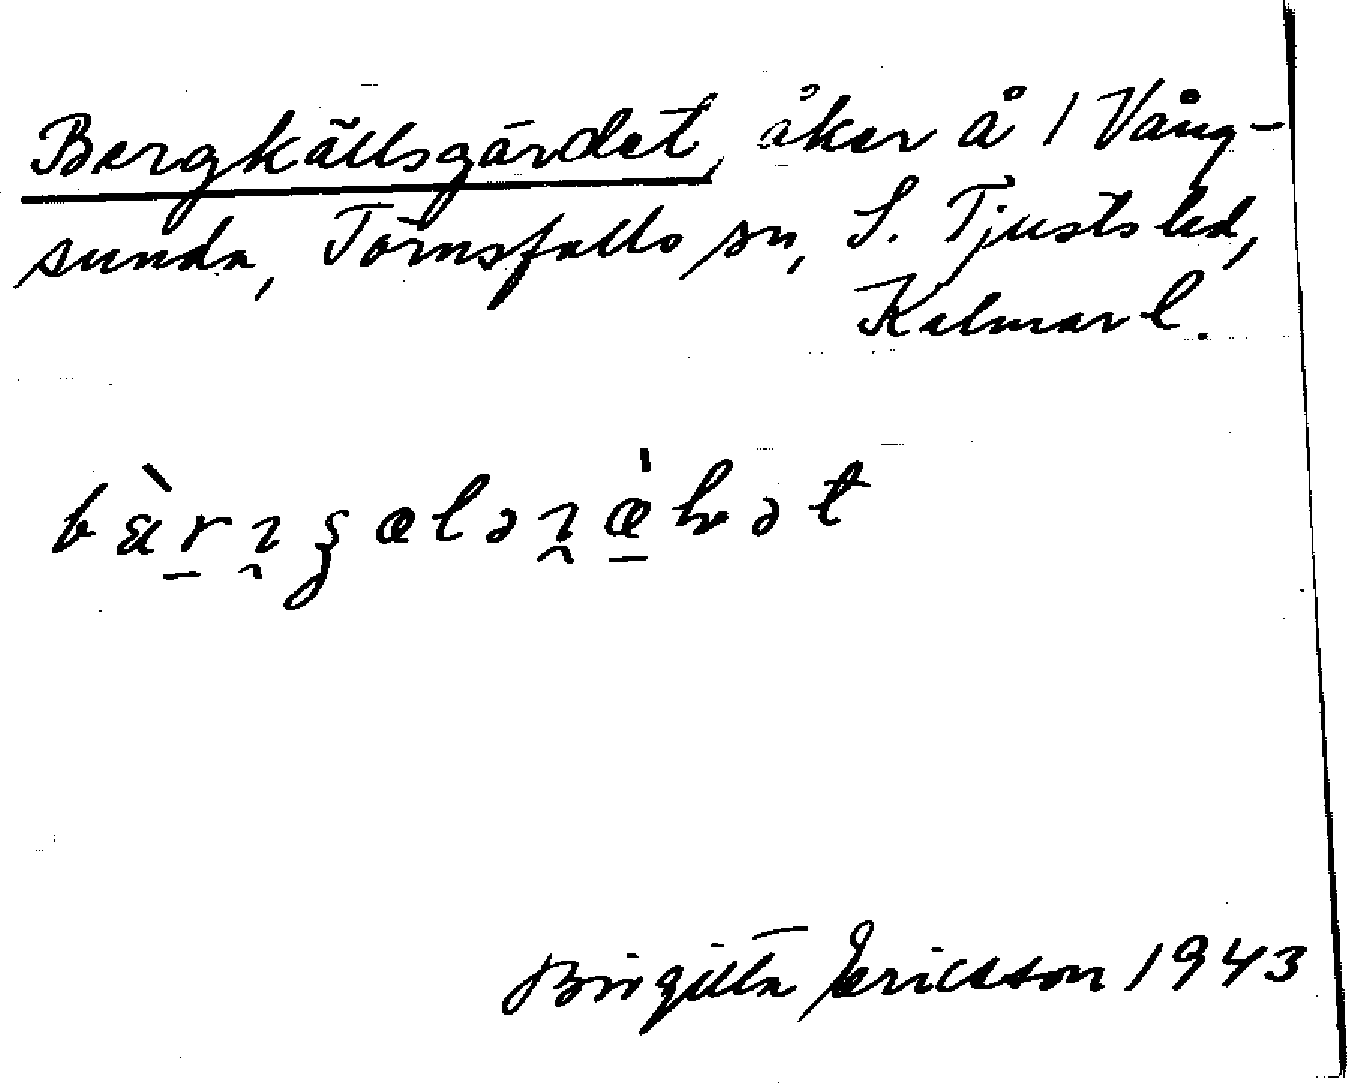 Bergkällsgärdet, åker å 1 Vång-
sunda, Törnsfalls sn, S. Tjusts hd,
Kalmar l.
Birgitta Ericsson 1943